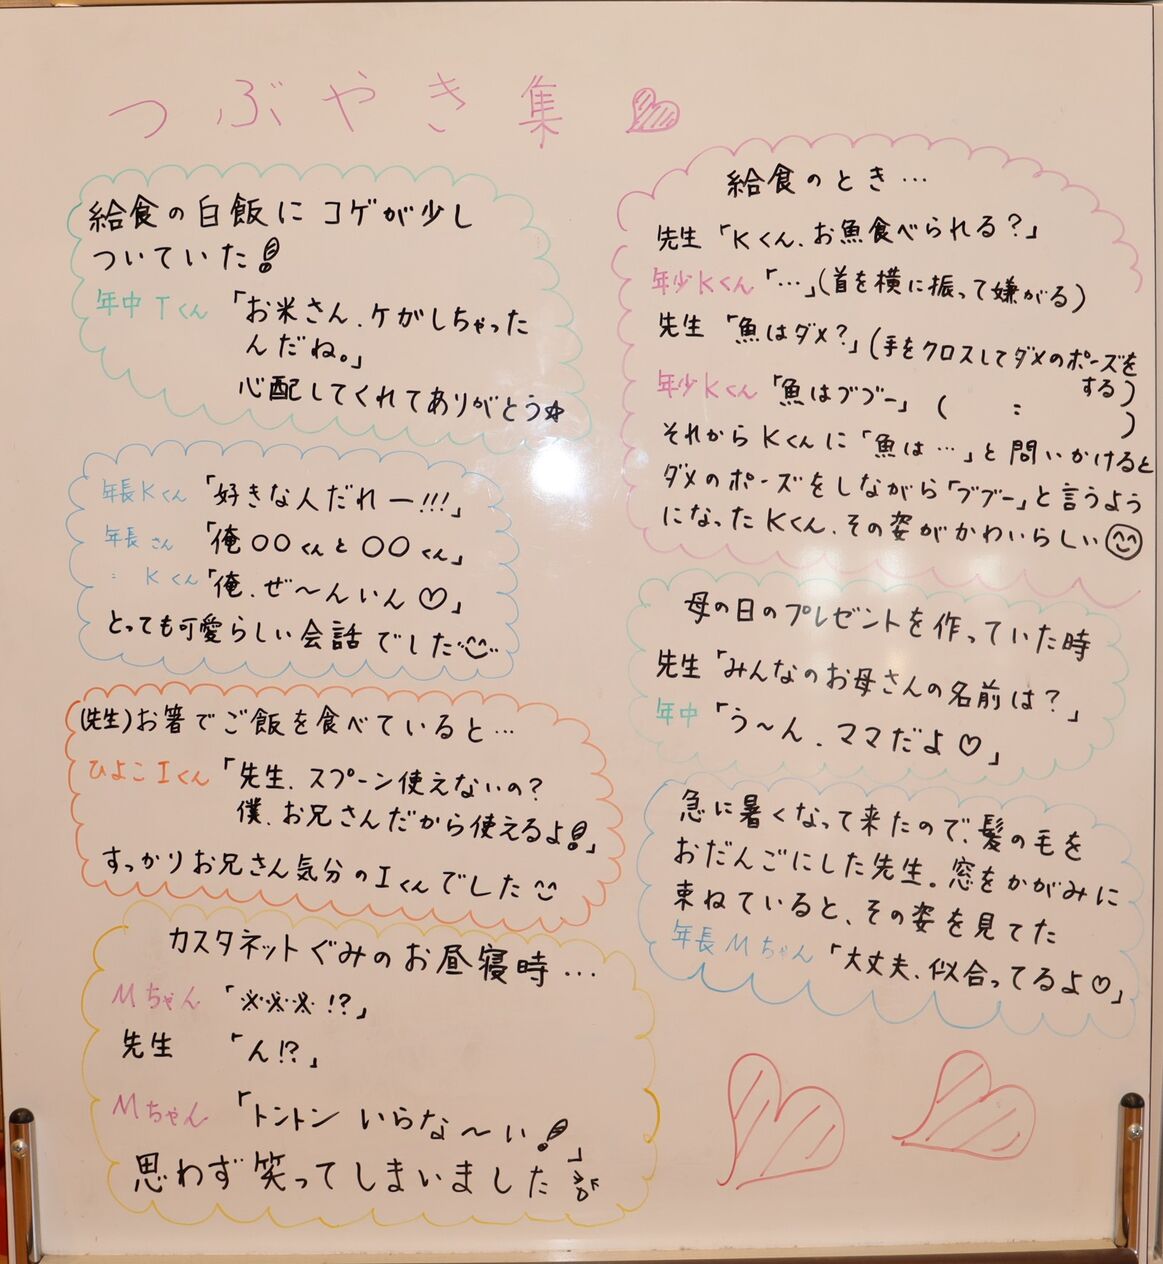 つぶやき集
給食の白飯にコゲが少し
ついていた!
年中Tくん「お米さん、ケがしちゃった
んだね。」
心配してくれてありがとう☆
年長Kくん「好きな人だれー!!!」
年長さん「俺〇〇くんと〇〇くん」
〃 Kくん「俺、ぜ〜んいん♡」
とっても可愛らしい会話でした
(先生)お箸でご飯を食べていると…
ひよこIくん「先生、スプーン使えないの?
僕、お兄さんだから使えるよ!」
すっかりお兄さん気分のIくんでした
カスタネットぐみのお昼寝時…
Mちゃん「※※※!?」
先生「ん!?」
Mちゃん「トントンいらな〜い!」
思わず笑ってしまいました
給食のとき…
先生「Kくん、お魚食べられる?」
年少Kくん「…」(首を横に振って嫌がる)
先生「魚はダメ?」(手をクロスしてダメのポーズを
する)
年少Kくん「魚はブブー」( 〃 )
それからKくんに「魚は…」と問いかけると
ダメのポーズをしながら「ブブー」と言うよう
になったKくん、その姿がかわいらしい
母の日のプレゼントを作っていた時
先生「みんなのお母さんの名前は?」
年中「う〜ん、ママだよ♡」
急に暑くなって来たので、髪の毛を
おだんごにした先生。窓をかがみに
束ねていると、その姿を見てた
年長Mちゃん「大丈夫、似合ってるよ♡」